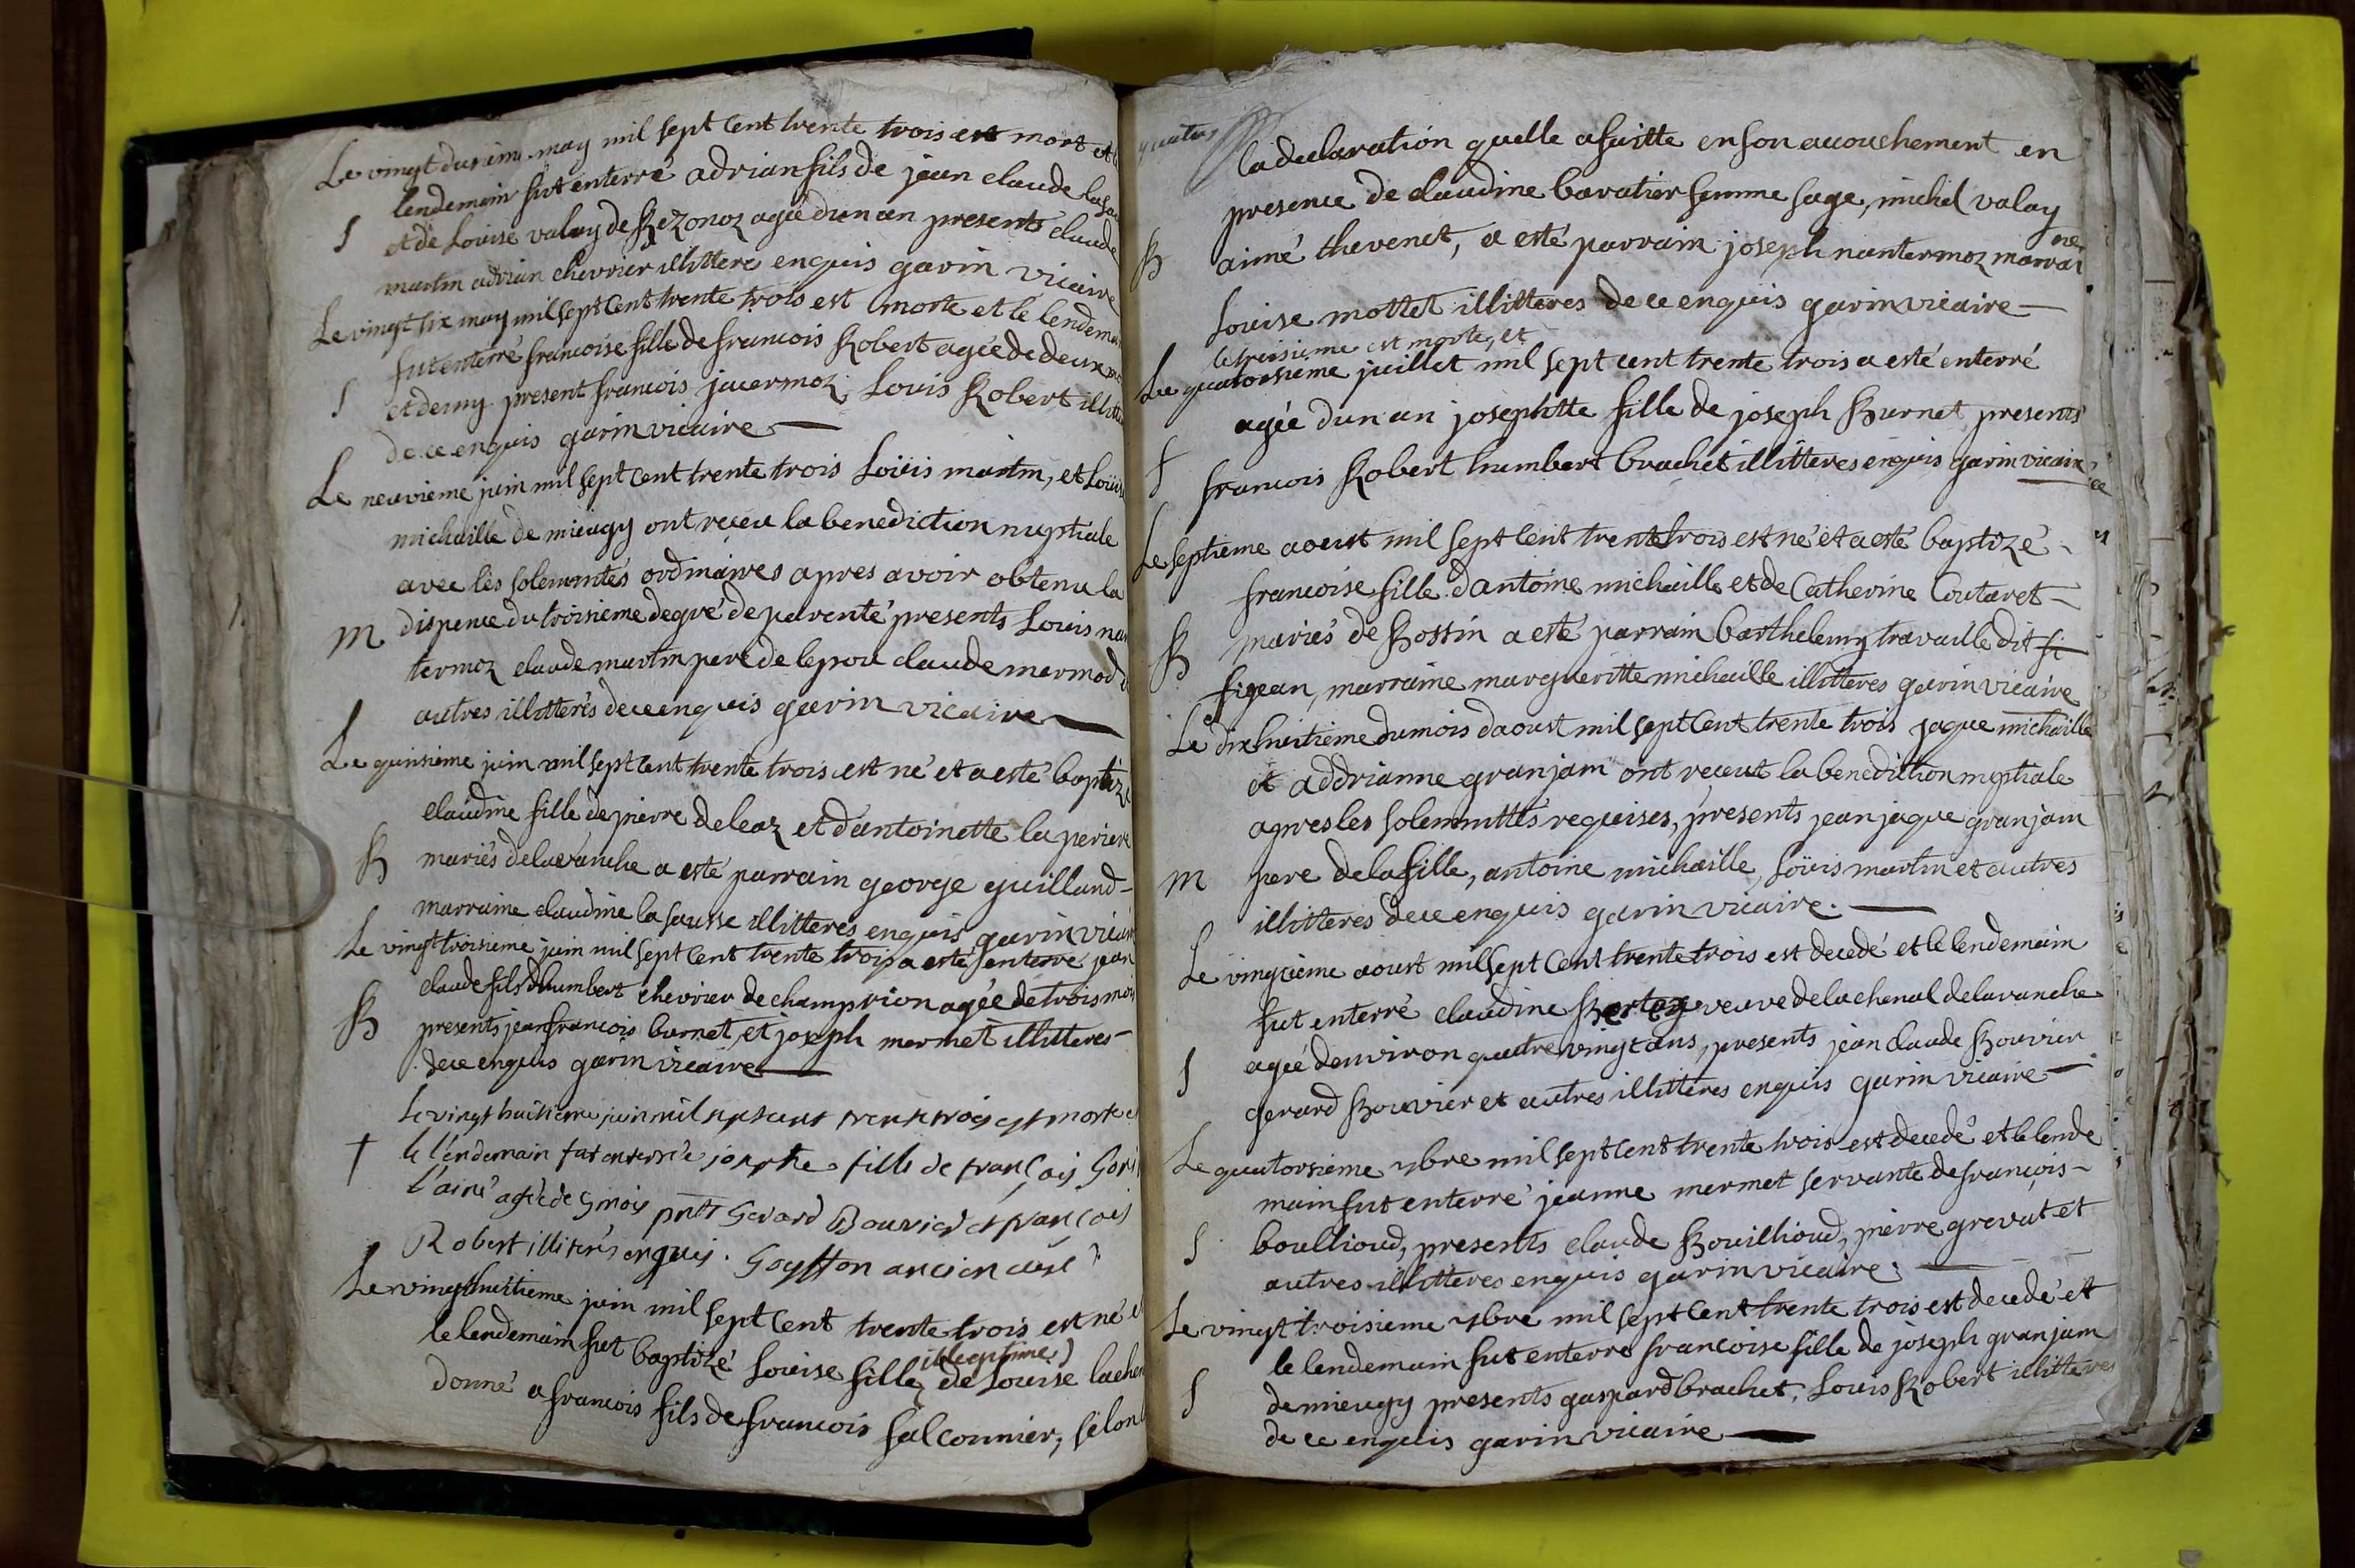 Le vingt deusieme may mil sept cent trente trois est mort et
lendemain fut enterré adrian fils de jean claude
S et de Louise valay de Rezonoz agée dun an presents claude
martin adrian chevrier illitteré enquis garin vicaire
Le vingt six may mil sept cent trente trois est morte et le lendem
fut enterré francoise fille de francois Robert agée de deux
S et demy present francois juvermoz, Louis Robert illitte
de ce enquis garin vicaire
Le neuvieme juin mil sept cent trente trois Loüis martin, et Loüis
michaille de mieugy ont reçeu la benediction nuptiale
avec les solemnités ordinaires apres avoir obtenu la
M dispence du troisieme degré de parenté presents Louis nan
termoz claude martin pere de lepou claude mermod
autres illitterés de ce enquis garin vicaire
Le quinsieme juin mil sept cent trente trois est né et a esté baptizé
claudine fille de pierre deleaz et dantoinette la periere
B mariés delavanche a esté parrain george guilland
marraine claudine la sausse illitterés enquis garin vicair
Le vingt troisieme juin mil sept cent trente trois a esté enterré jean
claude fils dhumbert chevrier de champrion agée de trois moi
B presents jean francois burnet, et joseph mermet illitteres
de ce enquis garin vicaire
Le vingt huitieme juin mil sept cent trente trois est morte et
† le lendemain fut enterrée josephte fille de françois Gori
l'ainé agée de 5 mois pnts Gerard Bouvier et françois
Robert illiterés enquis. Goyffon ancien curé
Le vingt huitieme juin mil sept cent trente trois est né e
le lendemain fut baptizé Louise fille (illegitime) de Louise lachen
donné a francois fils de francois falconnier, selon
quatre
la declaration quelle a faitte en son accouchement en
presence de claudine baratier femme sage, michel valay
B aimé thevenet, a esté parrain joseph nantermoz marrai ne
Louise mottet illitteres de ce enquis garin vicaire
le treisieme est morte, et
Le quatorsieme juillet mil sept cent trente trois a esté enterré
agée dun an josephtte fille de joseph Burnet presents
† francois Robert humbert brachet illitteres enquis garin vicaire
Le septieme aoust mil sept cent trente trois est né et a esté baptizé
francoise fille dantoine michaille et de Catherine Coutaret
B mariés de Bossin a esté parrain barthelemy travaille dit fi
figean, marraine margueritte michaille illitteres garin vicaire
Le dixhuitieme du mois daoust mil sept cent trente trois jaque michaille
et addrianne granjam ont reçeut la benediction nuptiale
apres les solemnittés requises, presents jean jaque granjam
M pere de la fille, antoine michaille, Loüis martin et autres
illitteres de ce enquis garin vicaire.
Le vingtieme aoust mil sept cent trente trois est decedé et le lendemain
fut enterré claudine veuve de lachenal delavanche
S agée denviron quatre vingt ans, presents jean claude Bouvier
gerard Bouvier et autres illitteres enquis garin vicaire
Le quatorsieme 7bre mil sept cent trente trois est decedé et le lende
main fut enterré jeanne mermet servante de françois
S boullioud, presents claude Bouillioud, pierre grevat et
autres illitteres enquis garin vicaire.
Le vingt troisieme 7bre mil sept cent trente trois est decedé et
le lendemain fut enterré francoise fille de joseph granjam
S de mieugy presents gaspard brachet, Louis Robert illitteres
de ce enquis garin vicaire